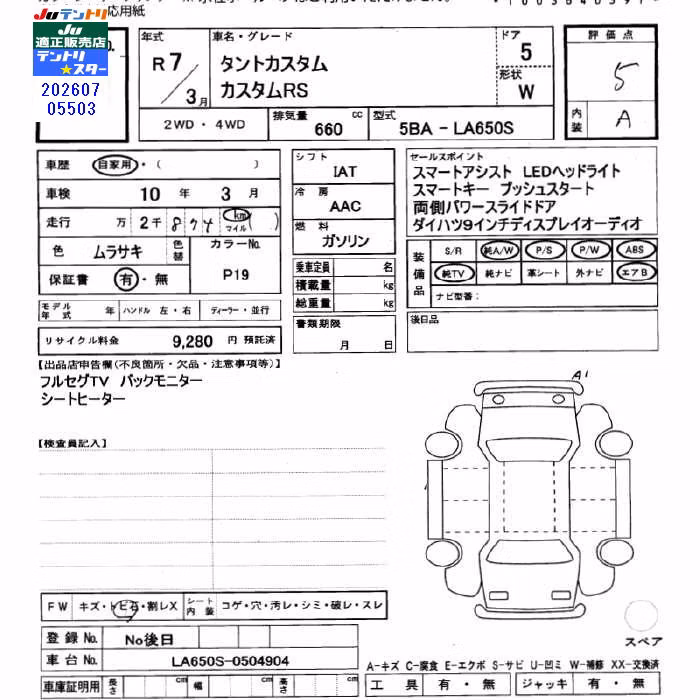 Juテントリ
Ju テントリ
適正販売店
テントリ
★スター
202607
05503
応用紙
No.
年式
R 7 / 3月
車名・グレード
タントカスタム
カスタムRS
ドア
5
形状
W
評価点
5
内装
A
2WD・4WD
排気量
660 cc
型式
5BA - LA650S
車歴
自家用・( )
車検
10 年 3 月
走行
万 2千 8 7 4 km マイル ( )
色
ムラサキ
色替
カラーNo.
P19
保証書
有・無
モデル年式
年
ハンドル 左・右
ディーラー・並行
リサイクル料金
9,280 円 預託済
シフト
IAT
冷房
AAC
燃料
ガソリン
乗車定員 名
積載量 kg
総重量 kg
書類期限
月 日
セールスポイント
スマートアシスト LEDヘッドライト
スマートキー プッシュスタート
両側パワースライドドア
ダイハツ9インチディスプレイオーディオ
装備品
S/R 純A/W P/S P/W ABS
純TV 純ナビ 革シート 外ナビ エアB
ナビ型番：
後日品
【出品店申告欄(不良箇所・欠品・注意事項等)】
フルセグTV バックモニター
シートヒーター
【検査員記入】
A1
FW
キズ・トビ石・割レX
シート内装
コゲ・穴・汚レ・シミ・破レ・スレ
登録No.
No後日
車台No.
LA650S-0504904
車庫証明用
長さ cm
幅 cm
高さ cm
スペア
A-キズ C-腐食 E-エクボ S-サビ U-凹ミ W-補修 XX-交換済
工具 有・無
ジャッキ 有・無